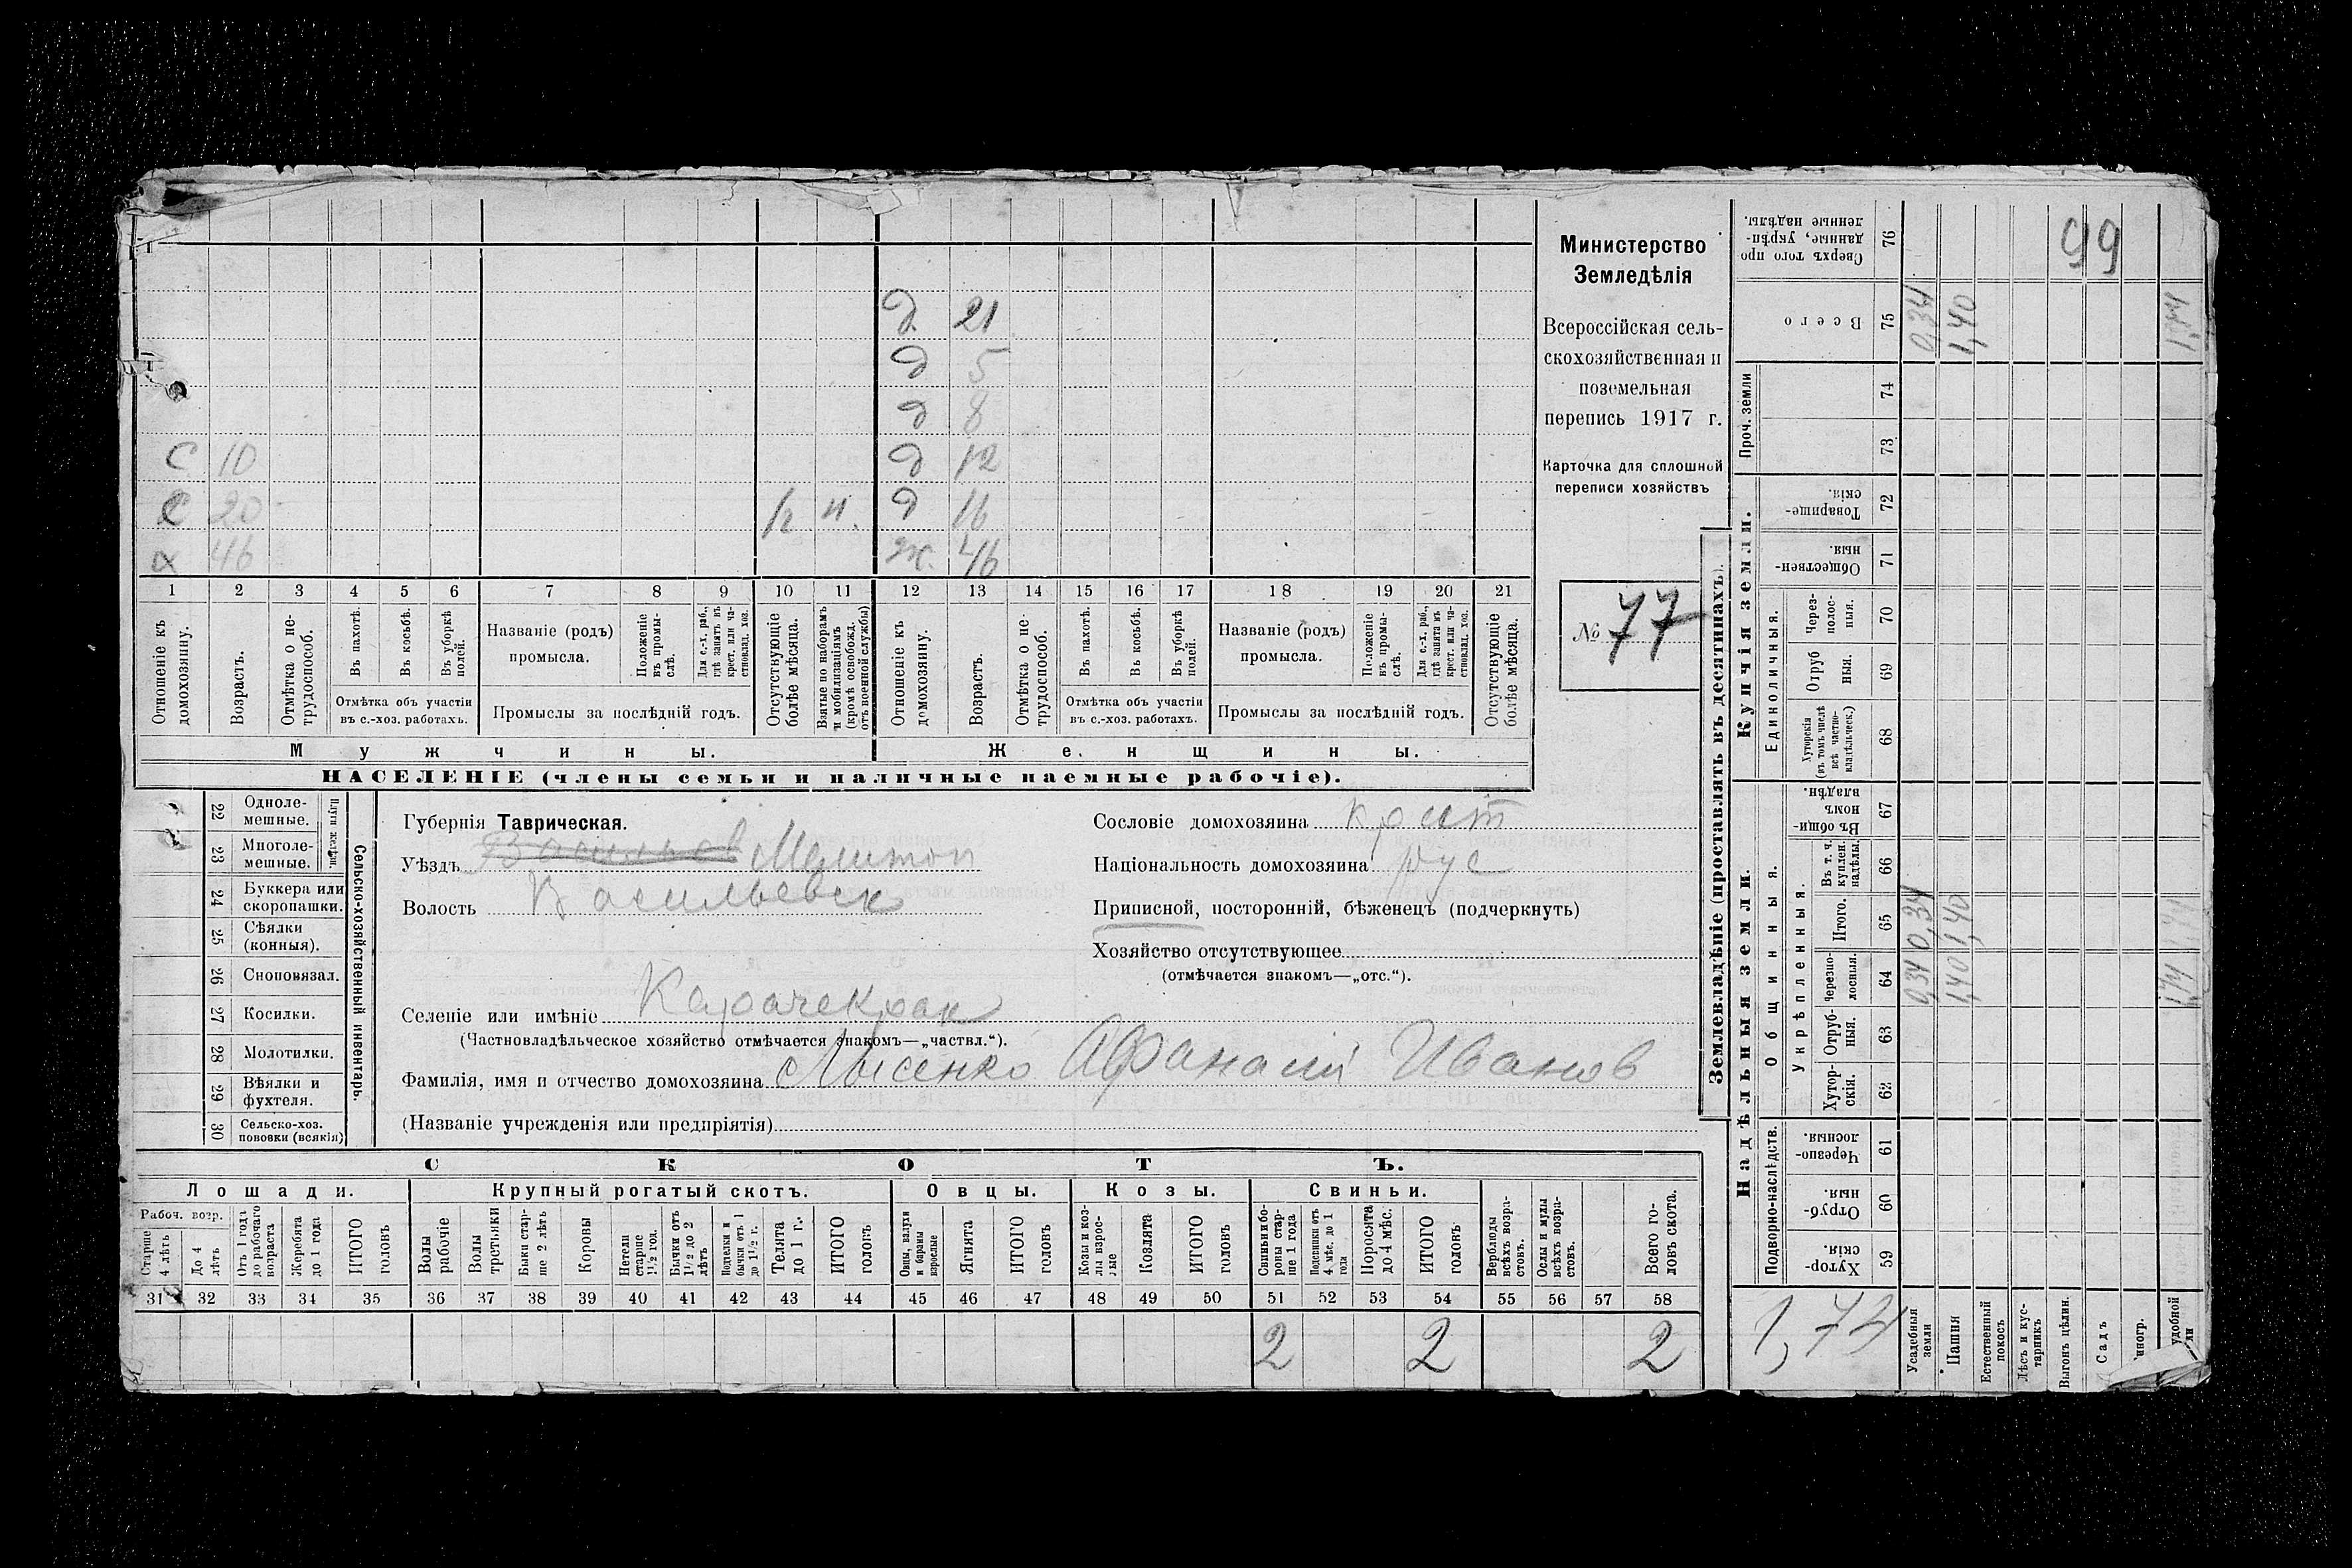 Министерство
Земледѣлія
Всероссійская сель-
скохозяйственная и
поземельная
перепись 1917 г.
Карточка для сплошной
переписи хозяйствъ
№ 77
д. 21
д 5
д 8
С 10 д 12
С 20 н. д 16
х 46 ж. 46
1 2 3 4 5 6 7 8 9 10 11 12 13 14 15 16 17 18 19 20 21
Отношеніе къ домохозяину.
Возрастъ.
Отмѣтка о не-трудоспособ.
Въ пахотѣ.
Въ косьбѣ.
Въ уборкѣ полей.
Отмѣтка объ участіи
въ с.-хоз. работахъ.
Названіе (родъ)
промысла.
Положеніе въ промы-слѣ.
Для с.-х. раб., гдѣ занятъ въ крест. или ча-стновлад. хоз.
Промыслы за послѣдній годъ.
Отсутствующіе болѣе мѣсяца.
Взятые по наборамъ и мобилизаціямъ (кромѣ освобожд. отъ военной службы)
Отношеніе къ домохозяину.
Возрастъ.
Отмѣтка о не-трудоспособ.
Въ пахотѣ.
Въ косьбѣ.
Въ уборкѣ полей.
Отмѣтка объ участіи
въ с.-хоз. работахъ.
Названіе (родъ)
промысла.
Положеніе въ промы-слѣ.
Для с.-х. раб., гдѣ занята въ крест. или ча-стновлад. хоз.
Промыслы за послѣдній годъ.
Отсутствующіе болѣе мѣсяца.
Мужчины. Женщины.
НАСЕЛЕНІЕ (члены семьи и наличные наемные рабочіе).
22 Одноле-мешные.
23 Многоле-мешные.
24 Буккера или скоропашки.
25 Сѣялки (конныя).
26 Сноповязал.
27 Косилки.
28 Молотилки.
29 Вѣялки и фухтеля.
30 Сельско-хоз. повозки (всякія)
Сельско-хозяйственный инвентарь.
Губернія Таврическая.
Уѣздъ Васильев Мелитоп
Волость Васильевск
Селеніе или имѣніе Карачекрак
(Частновладѣльческое хозяйство отмѣчается знакомъ—„частвл.“).
Фамилія, имя и отчество домохозяина Лысенко Афанасій Иванов
(Названіе учрежденія или предпріятія)
Сословіе домохозяина крест
Національность домохозяина рус
Приписной, посторонній, бѣженецъ (подчеркнуть)
Хозяйство отсутствующее
(отмѣчается знакомъ—„отс.“).
СКОТЪ.
Лошади. Крупный рогатый скотъ. Овцы. Козы. Свиньи.
Рабоч. возр.
Старше 4 лѣтъ
До 4 лѣтъ
Отъ 1 года до рабочаго возраста
Жеребята до 1 года
ИТОГО головъ
Волы рабочіе
Волы третьяки
Быки стар-ше 2 лѣтъ
Коровы
Нетели старше 1½ год.
Бычки отъ 1½ до 2 лѣтъ
Подтелки и бычки отъ 1 до 1½ г.
Телята до 1 г.
ИТОГО головъ
Овцы, валухи и бараны взрослые
Ягнята
ИТОГО головъ
Козы и коз-лы взрос-лые
Козлята
ИТОГО головъ
Свиньи и бо-ровы стар-ше 1 года
Подсвинки отъ 4 мѣс. до 1 года
Поросята до 4 мѣс.
ИТОГО головъ
Верблюды всѣхъ возра-стовъ.
Ослы и мулы всѣхъ возра-стовъ.
Всего го-ловъ скота.
31 32 33 34 35 36 37 38 39 40 41 42 43 44 45 46 47 48 49 50 51 52 53 54 55 56 57 58
2 2 2
Землевладѣніе (проставлять въ десятинахъ).
Надѣльныя земли.
Купчія земли.
Проч. земли
Подворно-наслѣдств.
Общинныя.
Укрѣпленныя.
Единоличныя.
Хутор-скія. 59
Отруб-ныя. 60
Черезпо-лосныя. 61
Хутор-скія. 62
Отруб-ныя. 63
Черезпо-лосныя. 64 0,34 1,40 1,74
Итого. 65 0,34 1,40
Въ т. ч. куплен. надѣлы. 66
Въ общи-номъ владѣн. 67
Хуторскія (въ томъ числѣ всѣ частно-владѣльческ.) 68
Отруб ныя. 69
Через-полос-ныя. 70
Обществен-ныя. 71
Товарище-скія. 72
73
74
Всего 75 0,34 1,40 1,74
Сверхъ того про-данные, укрѣп-ленные надѣлы. 76
99
1,74
Усадебныя земли
Пашня
Естественный покосъ
Лѣсъ и кус-тарникъ
Выгонъ цѣлин.
Садъ